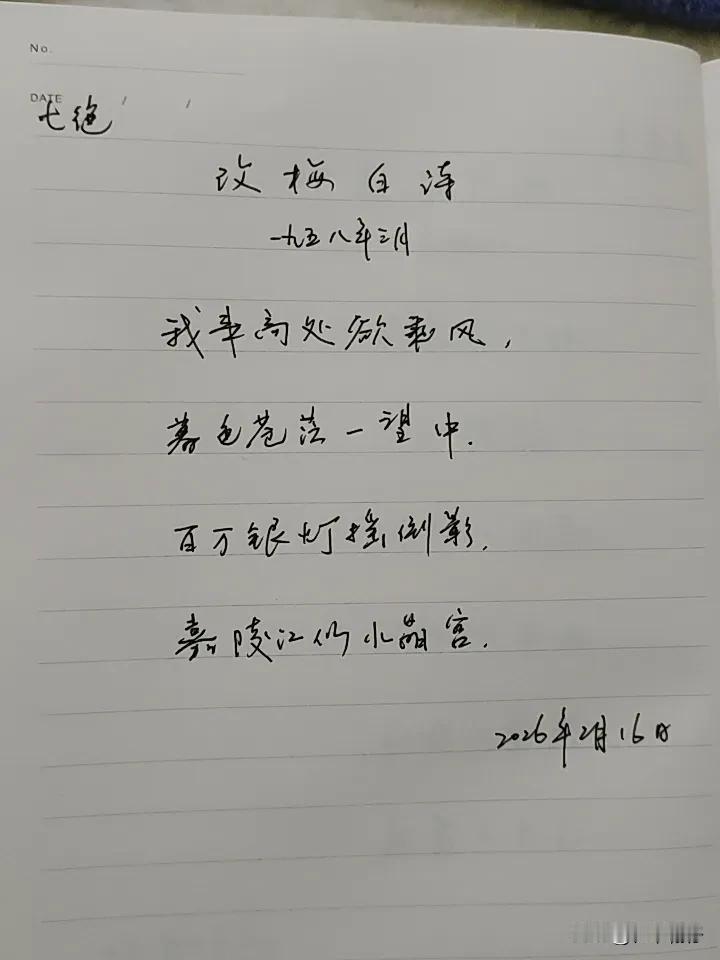 No.
DATE / /
七绝
改梅白诗
一九五八年三月
我来高处欲乘风,
暮色苍茫一望中.
百万银灯摇倒影,
嘉陵江似水晶宫.
2026年2月16日